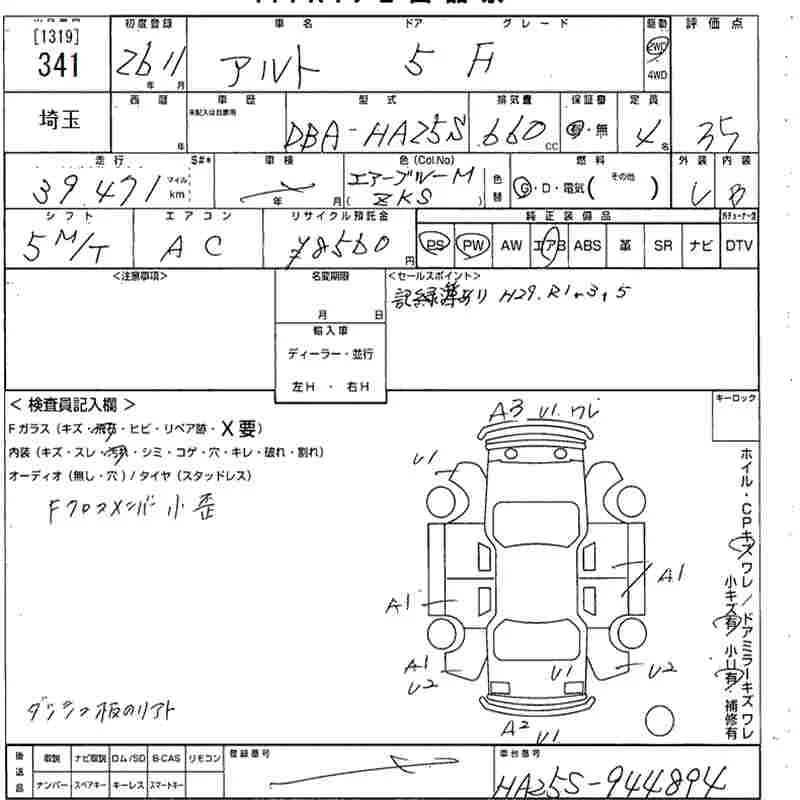 [1319]
341
初度登録 車名 ドア グレード 駆動 評価点
26 11 アルト 5 F 2WD
年 月 4WD
埼玉 西暦 車歴 型式 排気量 保証書 定員
未記入は自家用
年 DBA-HA25S 660 cc 有・無 4名 35
走行 S#* 車検 色(Col.No) 燃料 外装 内装
39471 マイル km 年 月 エアーブルーM ( ZKS ) 色替 G・D・電気( その他 ) B
シフト エアコン リサイクル預託金 純正装備品
5 M/T AC ¥8560 円 PS PW AW エアB ABS 革 SR ナビ DTV
<注意事項> 名変期限 <セールスポイント>
記録簿あり H29.R1,3,5
月 日
輸入車
ディーラー・並行
左H ・ 右H
<検査員記入欄> キーロック
Fガラス(キズ・飛石・ヒビ・リペア跡・X要)
内装(キズ・スレ・汚れ・シミ・コゲ・穴・キレ・破れ・割れ)
オーディオ(無し・穴)/タイヤ(スタッドレス)
Fクロスメンバー小歪
A3 U1 ワレ
U1
A1
A1
A1 U2
U1
U2
A2 U1
ホイル・CPキズワレ/ドアミラーキズワレ
小キズ有/小U有/補修有
後送品 取説 ナビ取説 ロム/SD B-CAS リモコン 登録番号 車台番号
ナンバー スペアキー キーレス スマートキー HA25S-944894